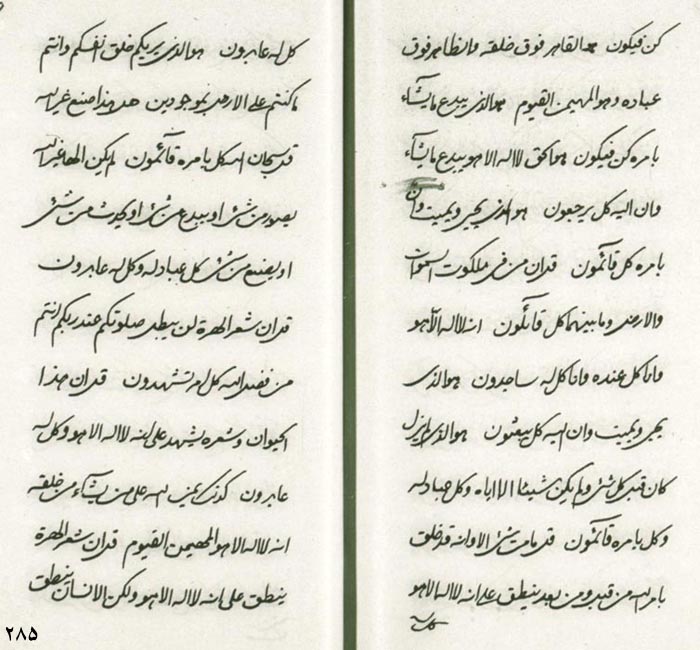 كن فيكون هو القاهر فوق خلقه والظاهر فوق
عباده وهو المهيمن القيوم هو الذي يبدع ما يشآء
بامره كن فيكون هو الحق لا اله الا هو يبدع ما يشآء
وان اليه كل يرجعون هو الذي يحيي ويميت وان
بامره كل قآئمون قل ان من في ملكوت السموات
والارض وما بينهما كل قآئلون انه لا اله الا هو
وانا كل عنده وانا كل له ساجدون هو الذي
يحيي ويميت وان اليه كل يبعثون هو الذي لم يزل
كان قبل كل شئ ولم يكن شيئا الا اياه وكل عباد له
وكل بامره قآئمون قل ما من شئ الا وانه قد خلق
بامر الله من قبل ومن بعد ينطق على انه لا اله الا هو
كل له عابرون هو الذي يريكم خلق انفسكم وانتم
ما كنتم على الارض بموجودين هل هذا صنع غير الله
قل سبحان الله كل بامره قآئمون لم يكن اله غير الله
يصور من شئ او يبدع من شئ او يحدث من شئ
او يصنع من شئ كل عباد له وكل له عابرون
قل ان شعر الهرة لن يبطل صلوتكم عند ربكم انتم
من فضل الله كل لم تشهدون قل ان هذا
الحيوان وشعره يشهد على انه لا اله الا هو وكل له
عابرون كذلك يمن الله على من يشآء من خلقه
انه لا اله الا هو المهيمن القيوم قل ان شعر الهرة
ينطق على انه لا اله الا هو ولكن الانسان ينطق
٢٨٥